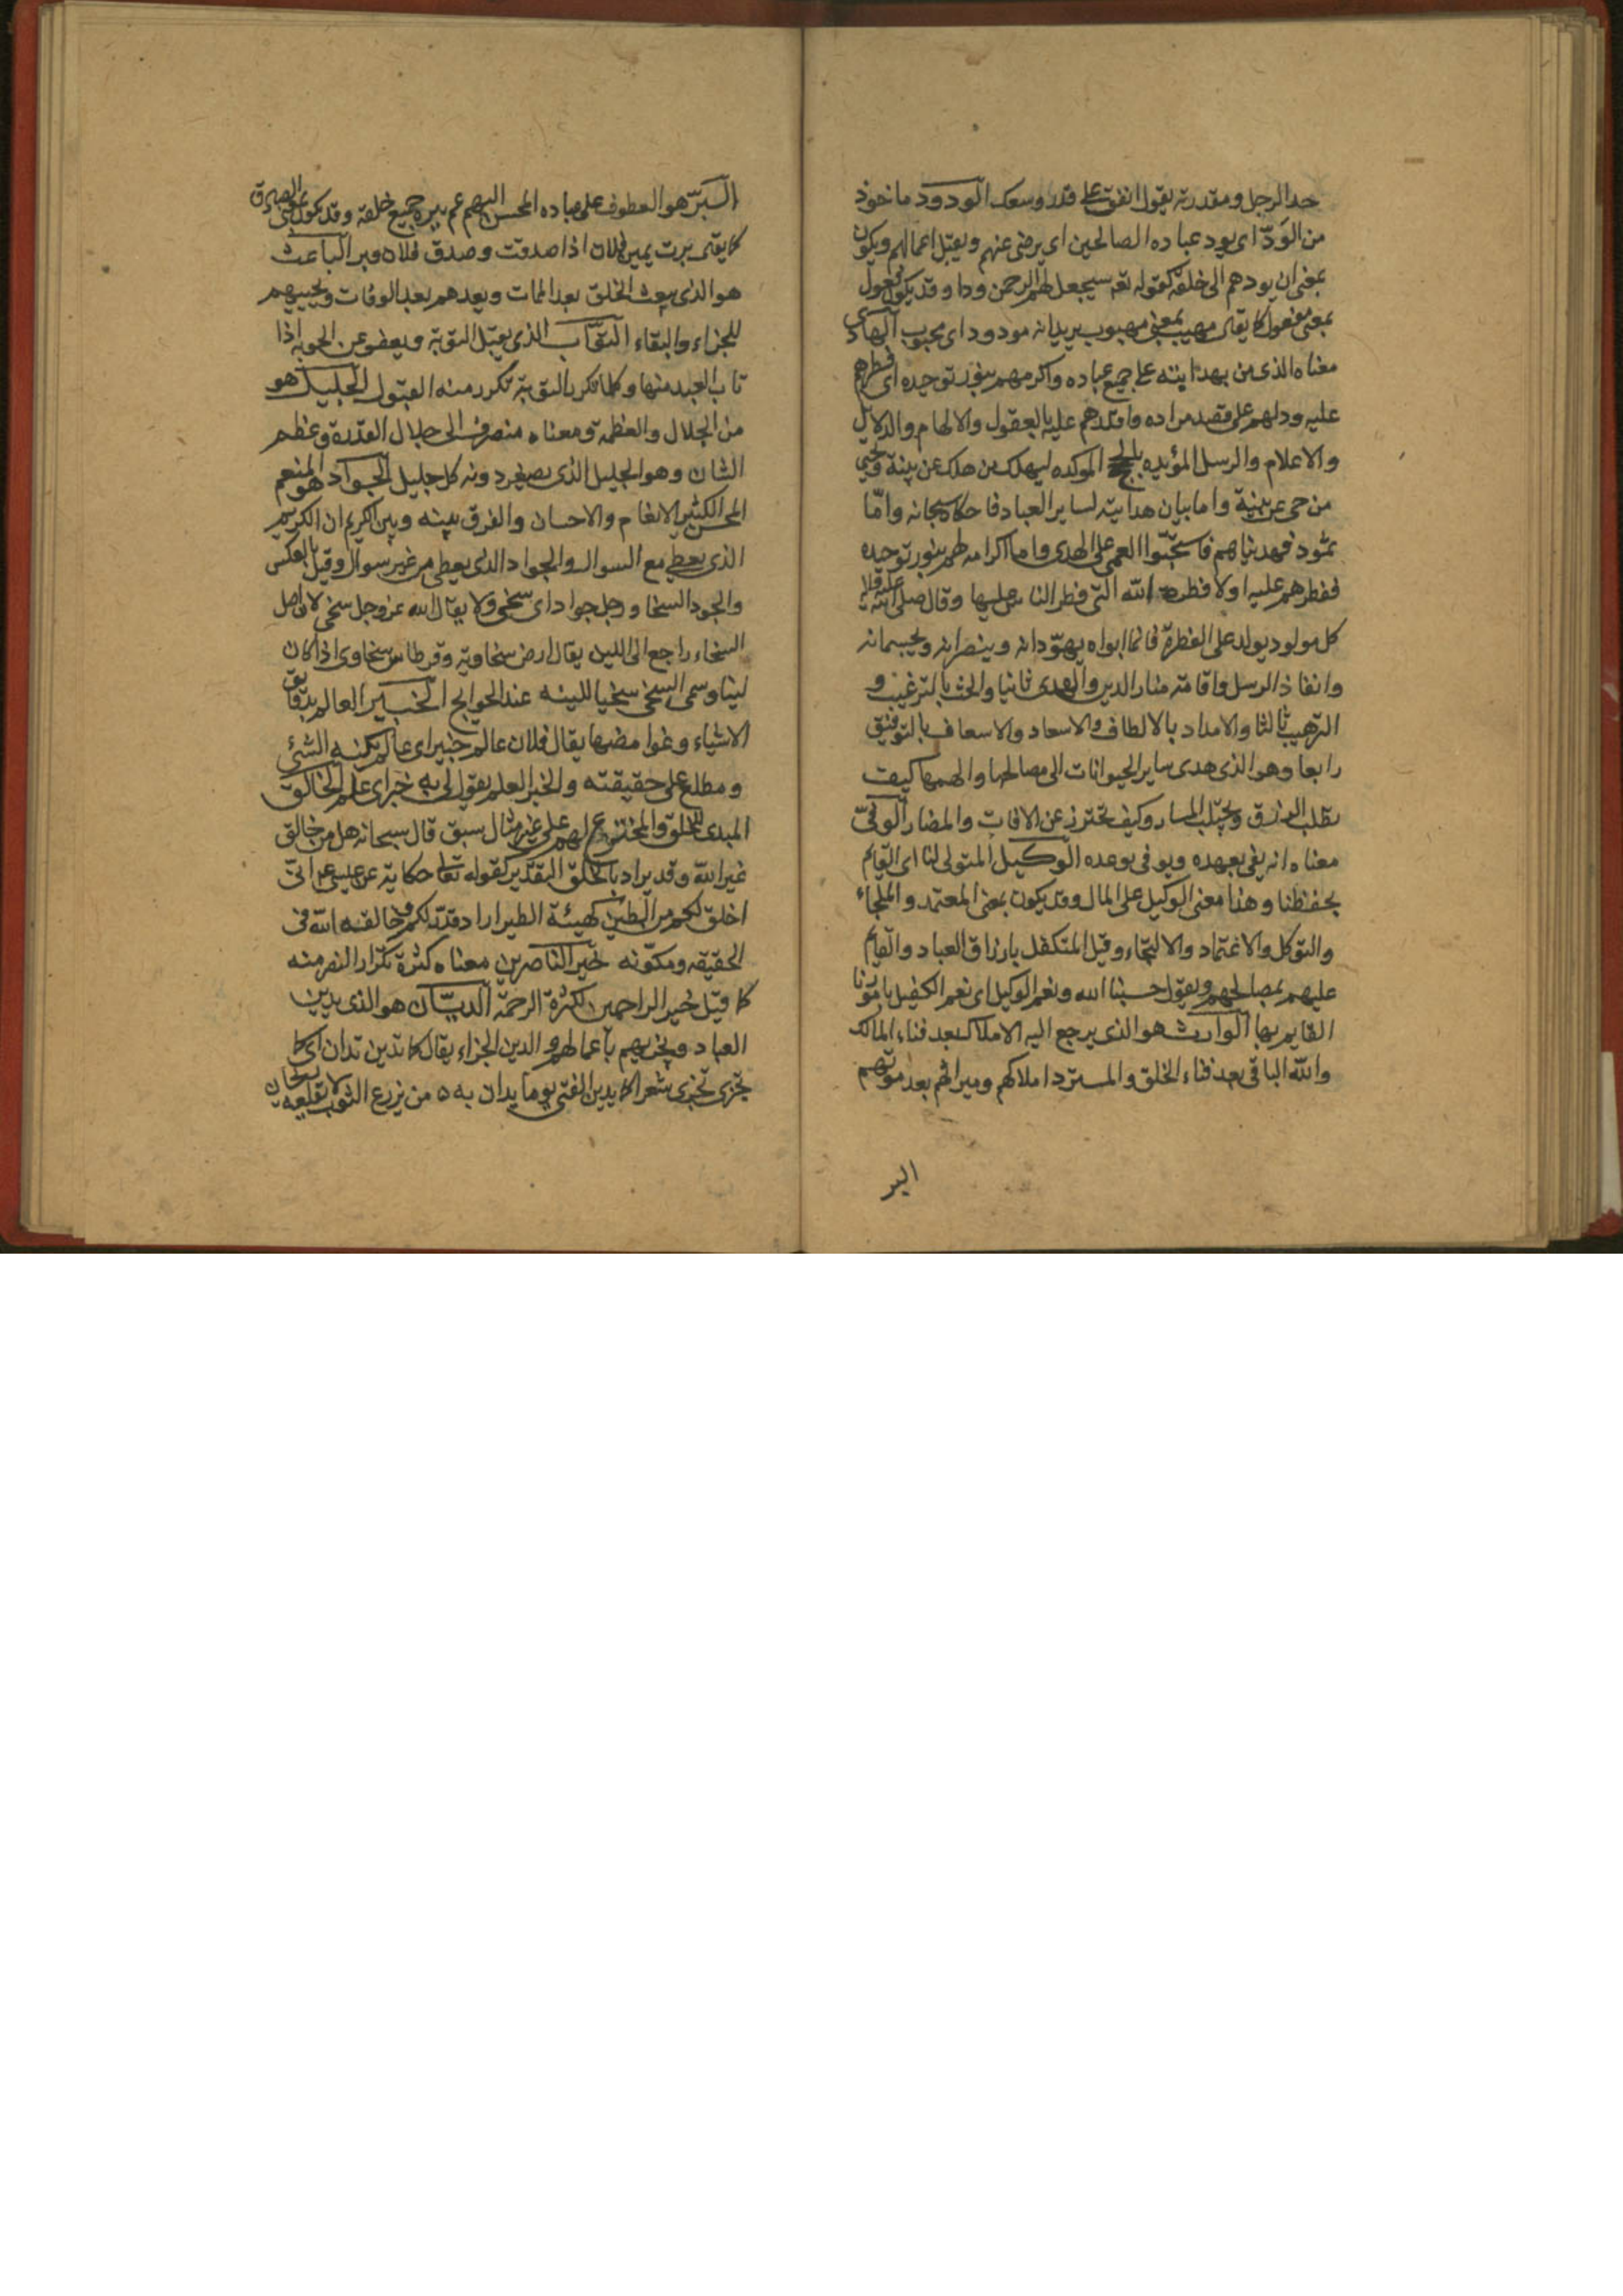 حد الرجل ومقدرته يقول انفق على قدر وسعك الودود ماخوذ
من الودّ اى يود عباده الصالحين اى يرضى عنهم ويقبل اعمالهم ويكون
بمعنى ان يودهم الى خلقه كقوله تعه سيجعل لهم الرحمن ودا وقد يكون فعول
بمعنى مفعول كما يقال مهيب بمعنى مهيوب يريد انه مودود اى محبوب الهادى
معناه الذى من بهدايته على جميع عباده واكرمهم بنور توحيده اى فطرهم
عليه ودلهم على قصد مراده واقدرهم عليه بالعقول والالهام والدلايل
والاعلام والرسل المؤيده بالحجج الموكده ليهلك من هلك عن بينة ويحيى
من حى عن بينة واما بيان هدايته لساير العباد فما حكاه سبحانه وامّا
ثمود فهديناهم فاستحبّوا العمى على الهدى واما اكرامه لهم بنور توحيده
ففطرهم عليه اولا فطرة الله التى فطر الناس عليها وقال صلى الله عليه واله
كل مولود يولد على الفطرة فانما ابواه يهوّدانه وينصرانه ويمجسانه
وانفاذ الرسل واقامته منار الدين والهدى ثانيا والحث بالترغيب و
الترهيب ثالثا والامداد بالالطاف والاسعاد والاسعاف بالتوفيق
رابعا وهو الذى هدى ساير الحيوانات الى مصالحها والهمها كيف
تطلب الرزق وتجتلب المسار وكيف تحترز عن الافات والمضار الوفىّ
معناه انه يفى بعهده ويوفى بوعده الوكيل المتولى لنا اى القايم
بحفظنا وهذا معنى الوكيل على المال وقد يكون بمعنى المعتمد والملجاء
والتوكل والاعتماد والالتجاء وقيل المتكفل بارزاق العباد والقايم
عليهم بمصالحهم ويقول حسبنا الله ونعم الوكيل اى نعم الكفيل بامورنا
القايم بها الوارث هو الذى يرجع اليه الاملاك بعد فناء المالك
والله الباقى بعد فناء الخلق والمسترد املاكهم وميراثهم بعد موتهم
البر
البَرّ هو العطوف على عباده المحسن اليهم عم ببره جميع خلقه وقد يكون بمعنى الصادق
كما يقال برت يمين فلان اذا صدقت وصدق فلان وبر الباعث
هو الذى يبعث الخلق بعد الممات ويعيدهم بعد الوفات ويحييهم
للجزاء والبقاء التوّاب الذى يقبل التوبة ويعفو عن الحوبه اذا
تاب العبد منها وكلما تكرر التوبة تكرر منه القبول الجليل هو
من الجلال والعظمة ومعناه منصرف الى جلال القدرة وعظم
الشان وهو الجليل الذى يصغر دونه كل جليل الجواد هو المنعم
المحسن الكثير الانعام والاحسان والفرق بينه وبين الكريم ان الكريم
الذى يعطى مع السوال والجواد الذى يعطى من غير سوال وقيل بالعكس
والجود السخا ورجل جواد اى سخى ولا يقال الله عز وجل سخى لان اصل
السخاء راجع الى اللين يقال ارض سخاوية وقرطاس سخاوى اذا كان
لينا وسمى السخى سخيا للينه عند الحوايج الخبير العالم بدقايق
الاشياء وغوامضها يقال فلان عالم خبير اى عالم بكنه الشئ
ومطلع على حقيقته والخبر العلم يقول لى به خبر اى علم الخالق
المبدى للخلق والمخترع لهم على غير مثال سبق قال سبحانه هل من خالق
غير الله وقد يراد بالخلق التقدير كقوله تعا حكاية عن عيسى عم انى
اخلق لكم من الطين كهيئة الطير اراد قدر لكم وخالقه الله فى
الحقيقه ومكوّنه خير الناصرين معناه كثرة تكرار النصر منه
كما قيل خير الراحمين لكثرة الرحمة الديّان هو الذى يدين
العباد ويجزيهم باعمالهم والدين الجزاء يقال كما تدين تدان اى كما
تجزى تجزى شعر كما يدين الفتى يوما يدان به ٥ من يزرع الثوم لا يقلعه ريحان